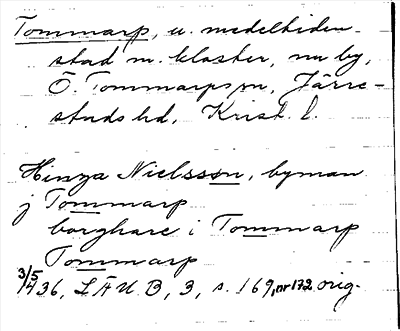 Tommarp, u. medeltiden
stad m. kloster, nu by,
Ö. Tommarps sn, Järre-
stads hd, Krist. l.
Hinza Nielsson, byman
j Tommarp
borghare i Tommarp
Tommarp
3/5 1436, LÄUB, 3, s. 169, nr 172 orig.